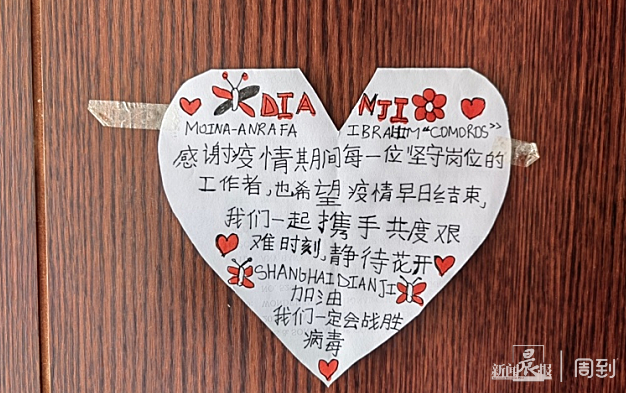 DIA NJI
MOINA-ANRAFA IBRAHIM "COMOROS"
感谢疫情期间每一位坚守岗位的
工作者,也希望疫情早日结束,
我们一起携手共度艰
难时刻,静待花开
SHANGHAIDIANJI
加油
我们一定会战胜
病毒
新闻晨报 周到